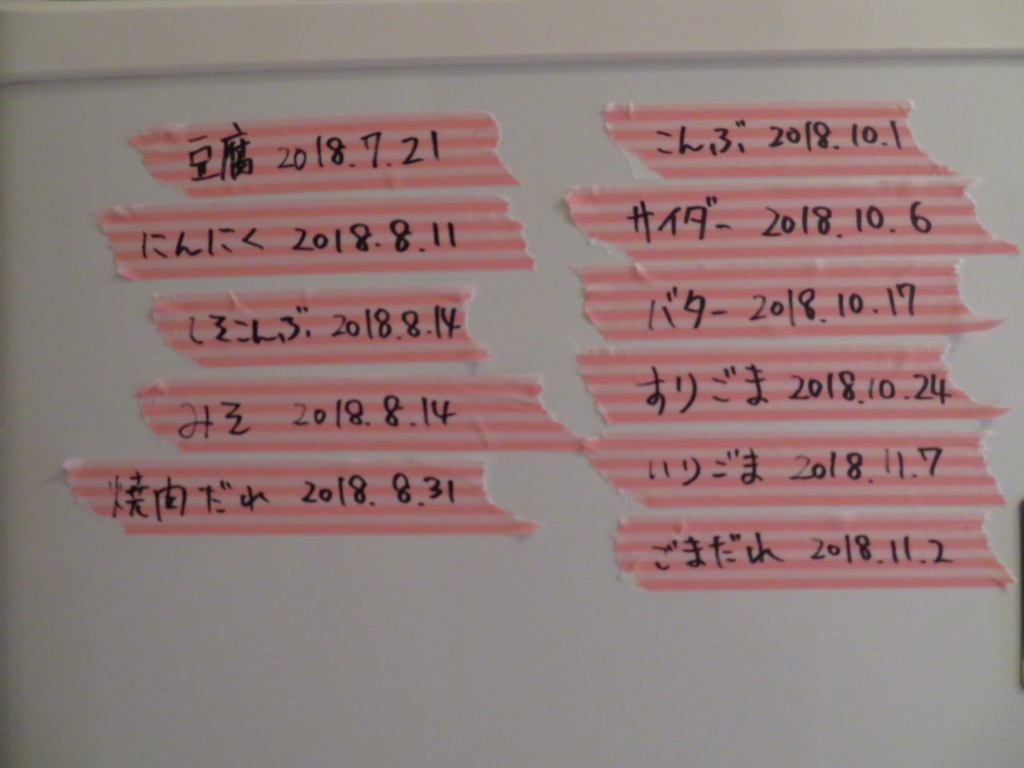 豆腐 2018.7.21
にんにく 2018.8.11
しそこんぶ 2018.8.14
みそ 2018.8.14
焼肉だれ 2018.8.31
こんぶ 2018.10.1
サイダー 2018.10.6
バター 2018.10.17
すりごま 2018.10.24
いりごま 2018.11.7
ごまだれ 2018.11.2